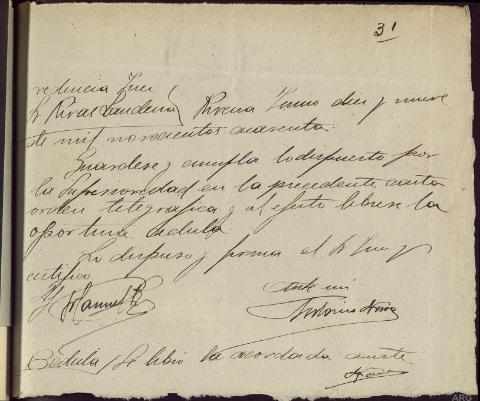 31
Providencia Juez
Sr Rivas Candena Rivera Junio diez y nueve
de mil novecientos cuarenta.
Guardese y cumpla lo dispuesto por
la Superioridad en la precedente carta
orden telegrafica y al efecto librese la
oportuna cedula
Lo dispuso y firma el Sr Juez
certifico
Ante mi
Antonio
Cedula / Se libró la acordada conste
ARG